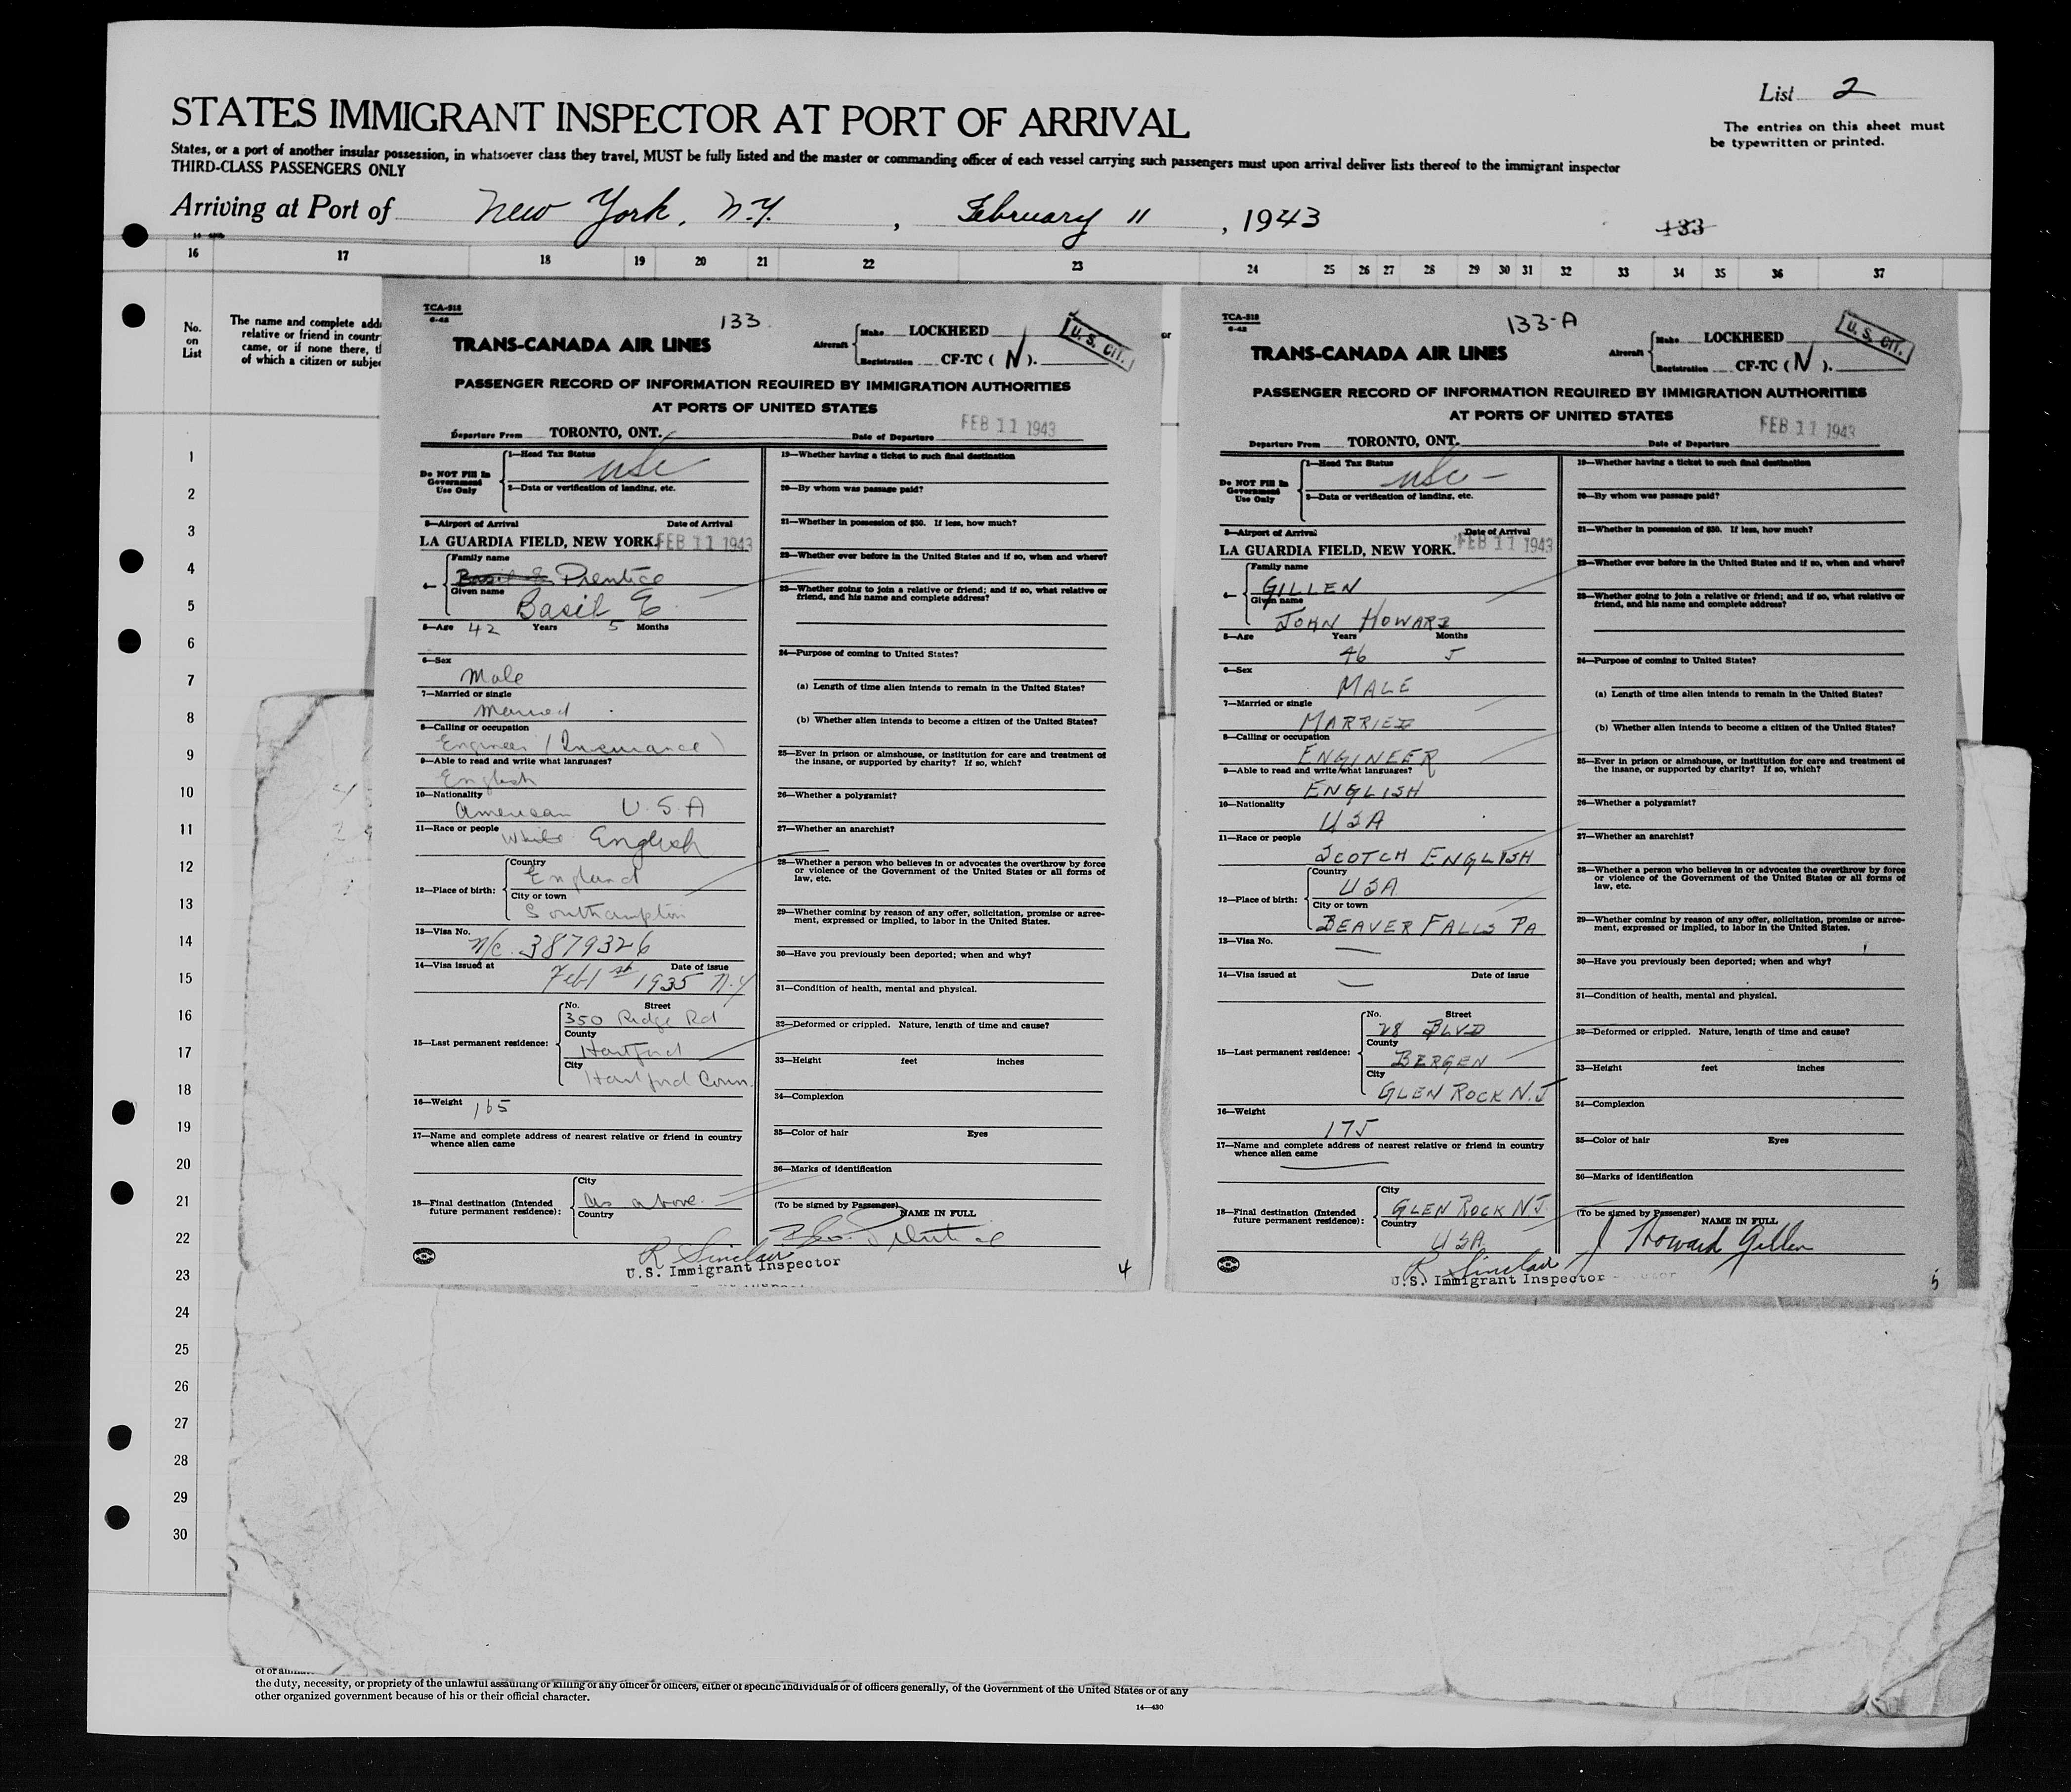 List 2
STATES IMMIGRANT INSPECTOR AT PORT OF ARRIVAL
The entries on this sheet must
be typewritten or printed.
States, or a port of another insular possession, in whatsoever class they travel, MUST be fully listed and the master or commanding officer of each vessel carrying such passengers must upon arrival deliver lists thereof to the immigrant inspector
THIRD-CLASS PASSENGERS ONLY
Arriving at Port of New York, N.Y. , February 11 , 1943
133
16 17 18 19 20 21 22 23 24 25 26 27 28 29 30 31 32 33 34 35 36 37
No.
on
List
The name and complete add
relative or friend in countr
came, or if none there, t
of which a citizen or subje
or
1
2
3
4
5
6
7
8
9
10
11
12
13
14
15
16
17
18
19
20
21
22
23
24
25
26
27
28
29
30
TCA-518
6-42
133
TRANS-CANADA AIR LINES
Aircraft Make LOCKHEED
Registration CF-TC ( N ).
U. S. CIT.
PASSENGER RECORD OF INFORMATION REQUIRED BY IMMIGRATION AUTHORITIES
AT PORTS OF UNITED STATES
Departure From TORONTO, ONT. Date of Departure FEB 11 1943
Do NOT Fill In
Government
Use Only
1—Head Tax Status
usc
2—Data or verification of landing, etc.
3—Airport of Arrival Date of Arrival
LA GUARDIA FIELD, NEW YORK. FEB 11 1943
4— Family name
Basil E Prentice
Given name
Basil E
5—Age 42 Years 5 Months
6—Sex
Male
7—Married or single
Married
8—Calling or occupation
Engineer (Insurance)
9—Able to read and write what languages?
English
10—Nationality
American U.S.A
11—Race or people
White English
12—Place of birth: Country
England
City or town
Southampton
13—Visa No.
N/C. 3879326
14—Visa issued at Date of issue
Feb 1st 1935 N.Y
15—Last permanent residence: No. Street
350 Ridge Rd
County
Hartford
City
Hartford Conn.
16—Weight 165
17—Name and complete address of nearest relative or friend in country
whence alien came
18—Final destination (Intended
future permanent residence): City
as above
Country
19—Whether having a ticket to such final destination
20—By whom was passage paid?
21—Whether in possession of $50. If less, how much?
22—Whether ever before in the United States and if so, when and where?
23—Whether going to join a relative or friend; and if so, what relative or
friend, and his name and complete address?
24—Purpose of coming to United States?
(a) Length of time alien intends to remain in the United States?
(b) Whether alien intends to become a citizen of the United States?
25—Ever in prison or almshouse, or institution for care and treatment of
the insane, or supported by charity? If so, which?
26—Whether a polygamist?
27—Whether an anarchist?
28—Whether a person who believes in or advocates the overthrow by force
or violence of the Government of the United States or all forms of
law, etc.
29—Whether coming by reason of any offer, solicitation, promise or agree-
ment, expressed or implied, to labor in the United States.
30—Have you previously been deported; when and why?
31—Condition of health, mental and physical.
32—Deformed or crippled. Nature, length of time and cause?
33—Height feet inches
34—Complexion
35—Color of hair Eyes
36—Marks of identification
(To be signed by Passenger)
NAME IN FULL
R Sinclair
U.S. Immigrant Inspector
4
TCA-518
6-42
133-A
TRANS-CANADA AIR LINES
Aircraft Make LOCKHEED
Registration CF-TC ( N ).
U. S. CIT.
PASSENGER RECORD OF INFORMATION REQUIRED BY IMMIGRATION AUTHORITIES
AT PORTS OF UNITED STATES
Departure From TORONTO, ONT. Date of Departure FEB 11 1943
Do NOT Fill In
Government
Use Only
1—Head Tax Status
usc —
2—Data or verification of landing, etc.
3—Airport of Arrival Date of Arrival
LA GUARDIA FIELD, NEW YORK. FEB 11 1943
4— Family name
GILLEN
Given name
JOHN HOWARD
5—Age Years Months
46 5
6—Sex
MALE
7—Married or single
MARRIED
8—Calling or occupation
ENGINEER
9—Able to read and write what languages?
ENGLISH
10—Nationality
USA
11—Race or people
SCOTCH ENGLISH
12—Place of birth: Country
USA
City or town
BEAVER FALLS PA
13—Visa No.
—
14—Visa issued at Date of issue
—
15—Last permanent residence: No. Street
28 BLVD
County
BERGEN
City
GLEN ROCK N.J
16—Weight
175
17—Name and complete address of nearest relative or friend in country
whence alien came
18—Final destination (Intended
future permanent residence): City
GLEN ROCK NJ.
Country
USA.
19—Whether having a ticket to such final destination
20—By whom was passage paid?
21—Whether in possession of $50. If less, how much?
22—Whether ever before in the United States and if so, when and where?
23—Whether going to join a relative or friend; and if so, what relative or
friend, and his name and complete address?
24—Purpose of coming to United States?
(a) Length of time alien intends to remain in the United States?
(b) Whether alien intends to become a citizen of the United States?
25—Ever in prison or almshouse, or institution for care and treatment of
the insane, or supported by charity? If so, which?
26—Whether a polygamist?
27—Whether an anarchist?
28—Whether a person who believes in or advocates the overthrow by force
or violence of the Government of the United States or all forms of
law, etc.
29—Whether coming by reason of any offer, solicitation, promise or agree-
ment, expressed or implied, to labor in the United States.
30—Have you previously been deported; when and why?
31—Condition of health, mental and physical.
32—Deformed or crippled. Nature, length of time and cause?
33—Height feet inches
34—Complexion
35—Color of hair Eyes
36—Marks of identification
(To be signed by Passenger)
NAME IN FULL
J Howard Gillen
R Sinclair
U.S. Immigrant Inspector
5
the duty, necessity, or propriety of the unlawful assaulting or killing of any officer or officers, either of specific individuals or of officers generally, of the Government of the United States or of any
other organized government because of his or their official character.
14—430